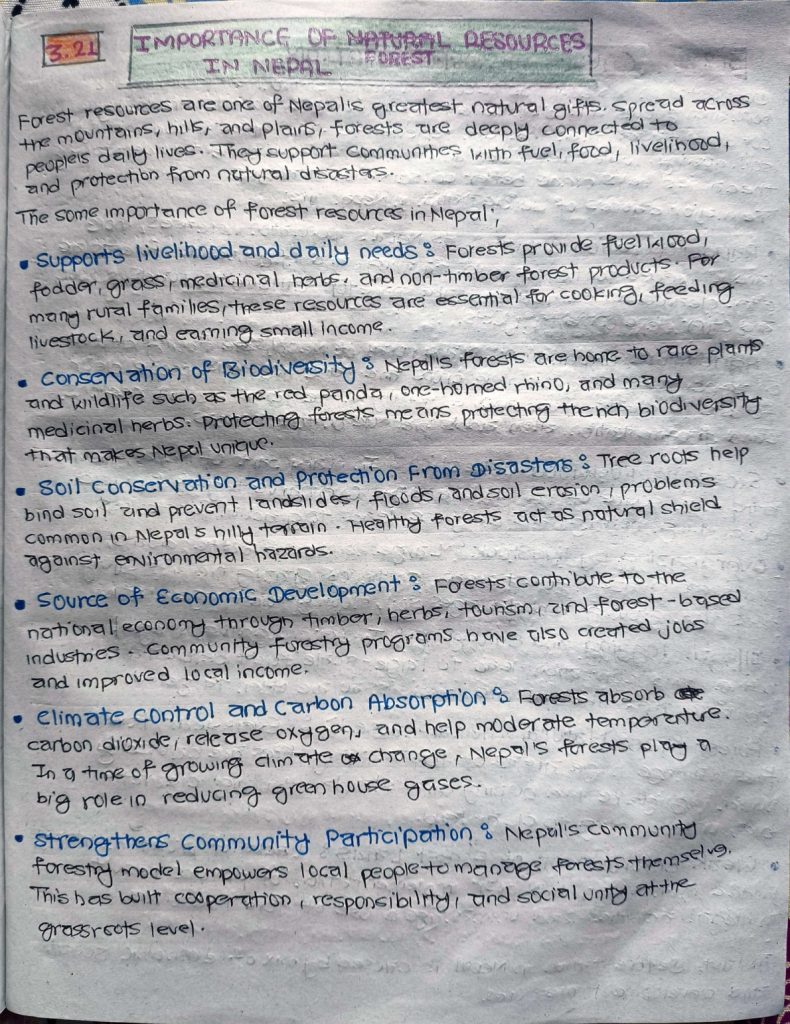 3.21 IMPORTANCE OF NATURAL RESOURCES
IN NEPAL FOREST
Forest resources are one of Nepal's greatest natural gifts. Spread across
the mountains, hills, and plains, forests are deeply connected to
people's daily lives. They support communities with fuel, food, livelihood,
and protection from natural disasters.
The some importance of forest resources in Nepal;,
• Supports livelihood and daily needs : Forests provide fuelwood,
fodder, grass, medicinal herbs, and non-timber forest products. For
many rural families, these resources are essential for cooking, feeding
livestock, and earning small income.
• Conservation of Biodiversity : Nepal's forests are home to rare plants
and wildlife such as the red panda, one-horned rhino, and many
medicinal herbs. Protecting forests means protecting the rich biodiversity
that makes Nepal unique.
• Soil Conservation and Protection From Disasters : Tree roots help
bind soil and prevent landslides, floods, and soil erosion, problems
common in Nepal's hilly terrain. Healthy forests act as natural shield
against environmental hazards.
• Source of Economic Development : Forests contribute to the
national economy through timber, herbs, tourism, and forest-based
industries. Community forestry programs have also created jobs
and improved local income.
• Climate Control and Carbon Absorption : Forests absorb
carbon dioxide, release oxygen, and help moderate temparenture.
In a time of growing climate change, Nepal's forests play a
big role in reducing green house gases.
• Strengthens Community Participation : Nepal's community
forestry model empowers local people to manage forests themselves.
This has built cooperation, responsibility, and social unity at the
grassroots level.